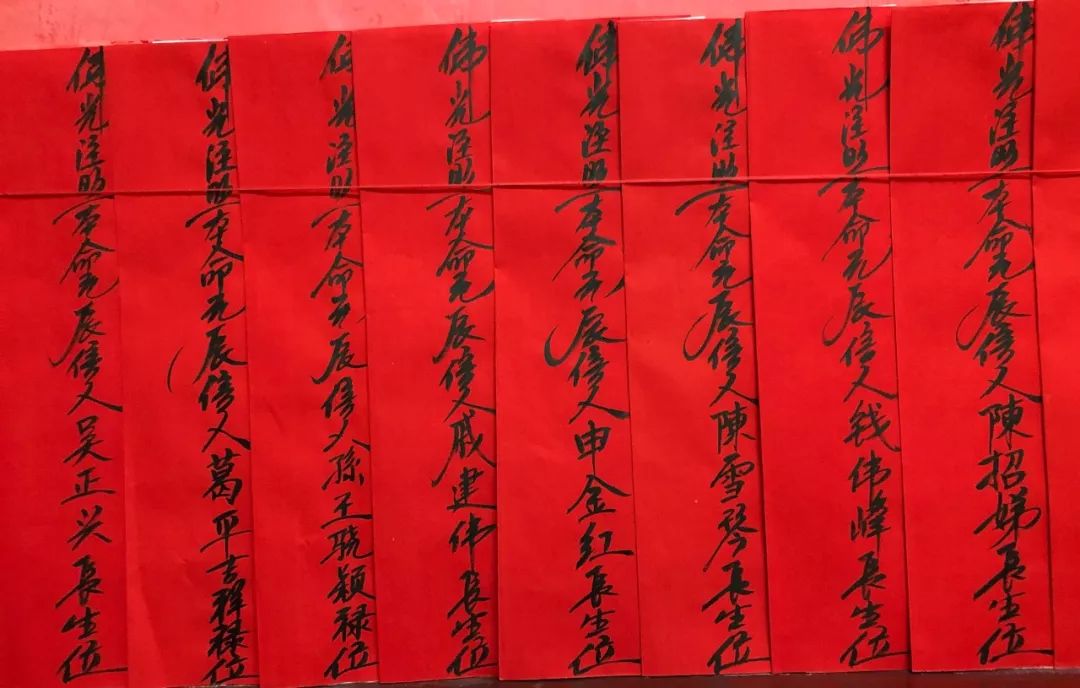 佛光注照本命元辰信人陳招娣長生位
佛光注照本命元辰信人钱伟峰長生位
佛光注照本命元辰信人陳雪琴長生位
佛光注照本命元辰信人申金红長生位
佛光注照本命元辰信人戚建伟長生位
佛光注照本命元辰信人孫王骁颖禄位
佛光注照本命元辰信人葛平吉祥禄位
佛光注照本命元辰信人吴正兴長生位